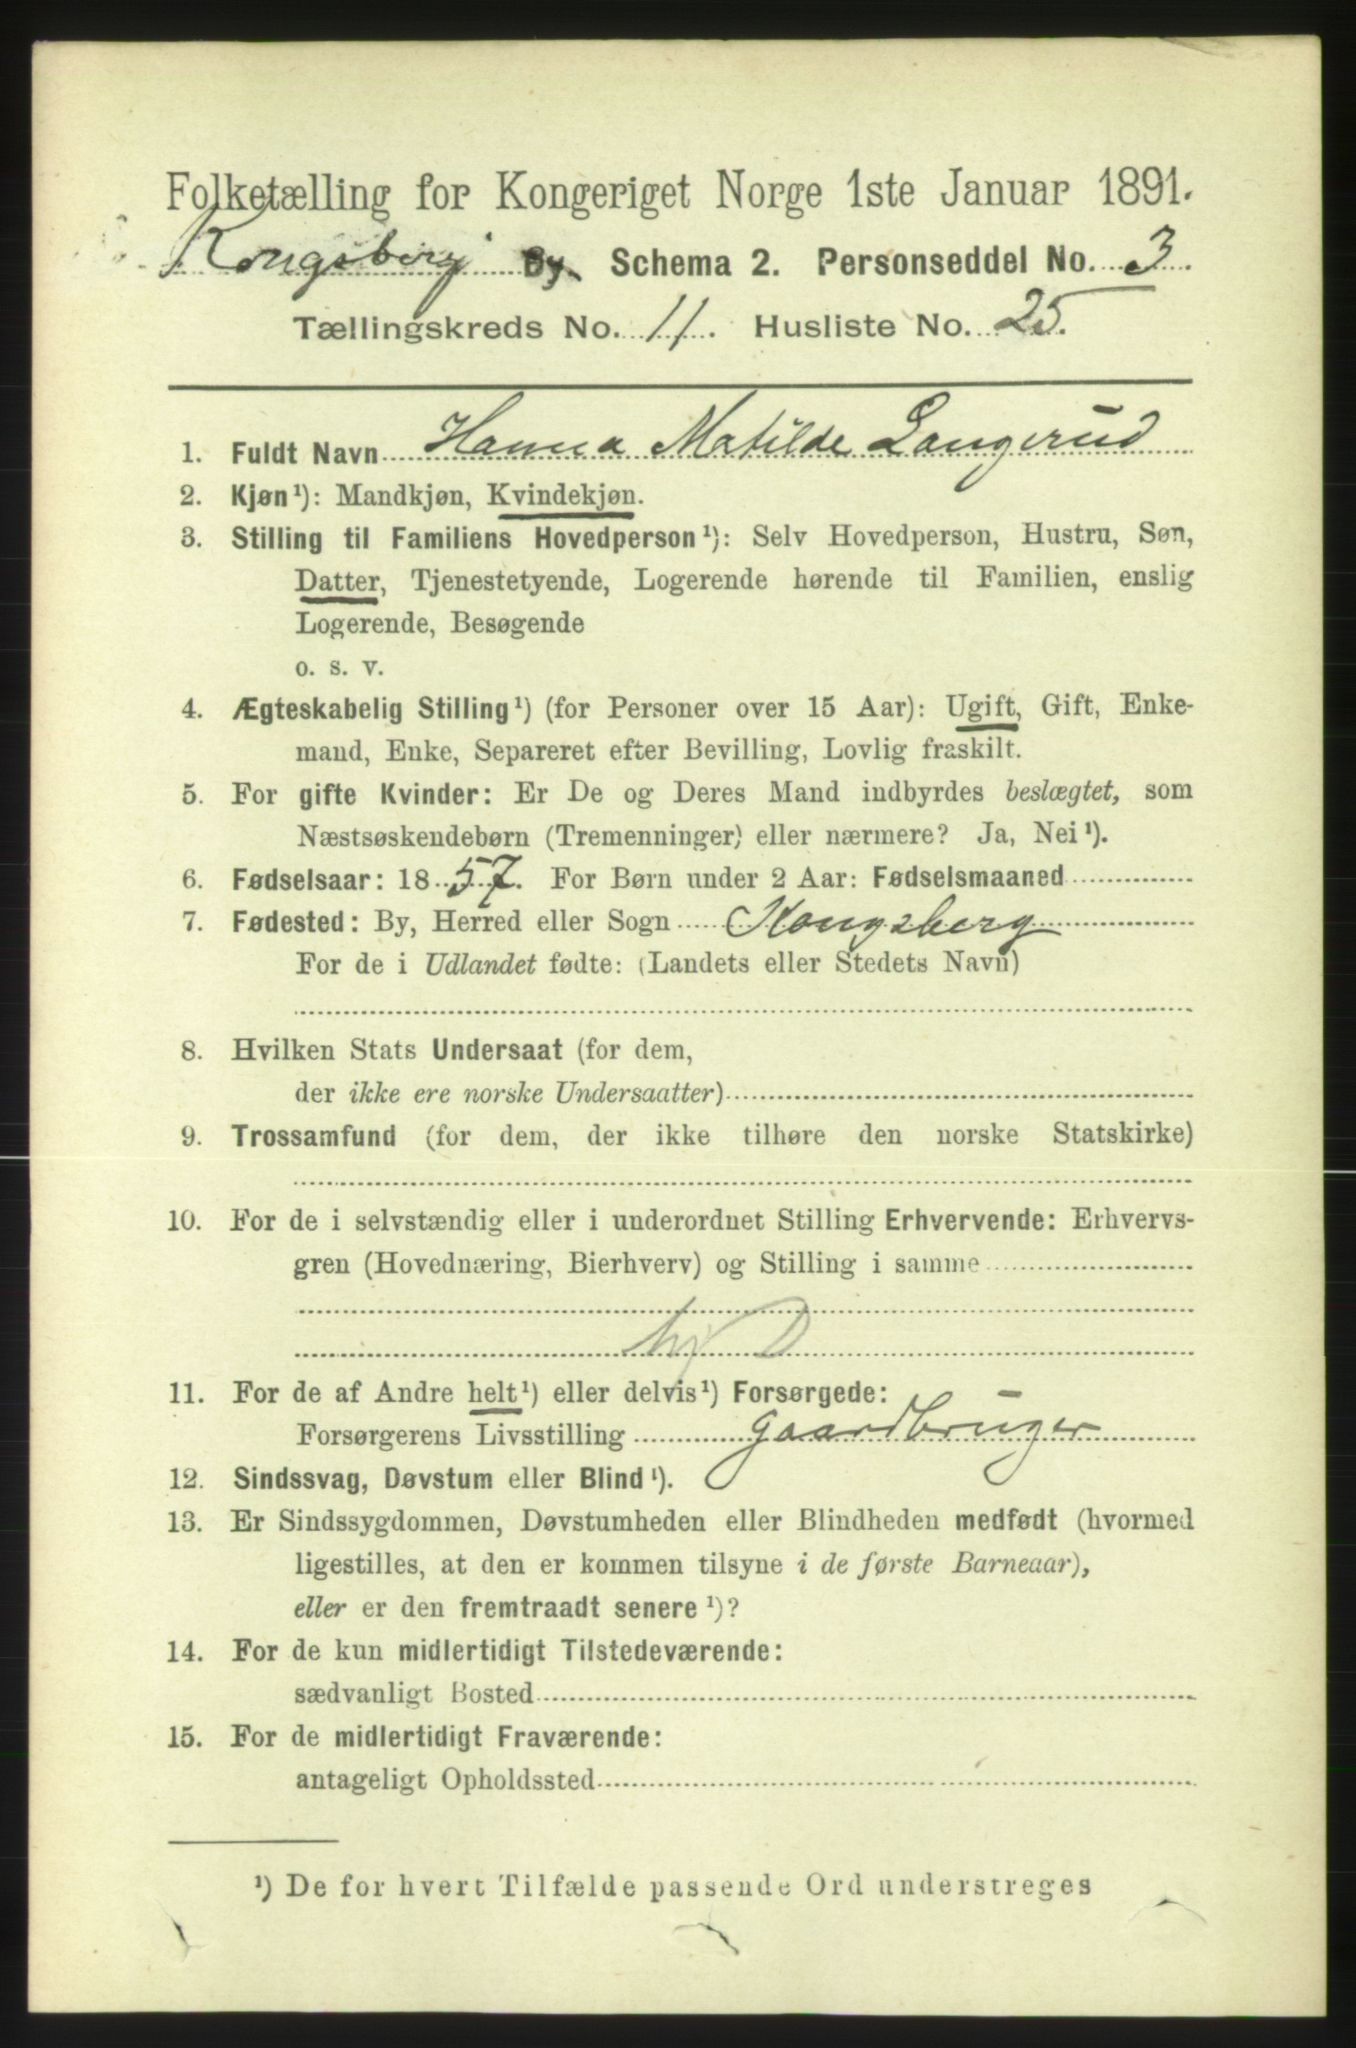 Folketælling for Kongeriget Norge 1ste Januar 1891.
Kongsberg By. Schema 2. Personseddel No. 3.
Tællingskreds No. 11. Husliste No. 25.
1. Fuldt Navn Hanna Matilde Langerud
2. Kjøn¹): Mandkjøn, Kvindekjøn.
3. Stilling til Familiens Hovedperson¹): Selv Hovedperson, Hustru, Søn,
Datter, Tjenestetyende, Logerende hørende til Familien, enslig
Logerende, Besøgende
o. s. v.
4. Ægteskabelig Stilling¹) (for Personer over 15 Aar): Ugift, Gift, Enke-
mand, Enke, Separeret efter Bevilling, Lovlig fraskilt.
5. For gifte Kvinder: Er De og Deres Mand indbyrdes beslægtet, som
Næstsøskendebørn (Tremenninger) eller nærmere? Ja, Nei¹).
6. Fødselsaar: 1857. For Børn under 2 Aar: Fødselsmaaned
7. Fødested: By, Herred eller Sogn Kongsberg
For de i Udlandet fødte: (Landets eller Stedets Navn)
8. Hvilken Stats Undersaat (for dem,
der ikke ere norske Undersaatter)
9. Trossamfund (for dem, der ikke tilhøre den norske Statskirke)
10. For de i selvstændig eller i underordnet Stilling Erhvervende: Erhvervs-
gren (Hovednæring, Bierhverv) og Stilling i samme
hj D
11. For de af Andre helt¹) eller delvis¹) Forsørgede:
Forsørgerens Livsstilling gaardbruger
12. Sindssvag, Døvstum eller Blind¹).
13. Er Sindssygdommen, Døvstumheden eller Blindheden medfødt (hvormed
ligestilles, at den er kommen tilsyne i de første Barneaar),
eller er den fremtraadt senere¹)?
14. For de kun midlertidigt Tilstedeværende:
sædvanligt Bosted
15. For de midlertidigt Fraværende:
antageligt Opholdssted
¹) De for hvert Tilfælde passende Ord understreges